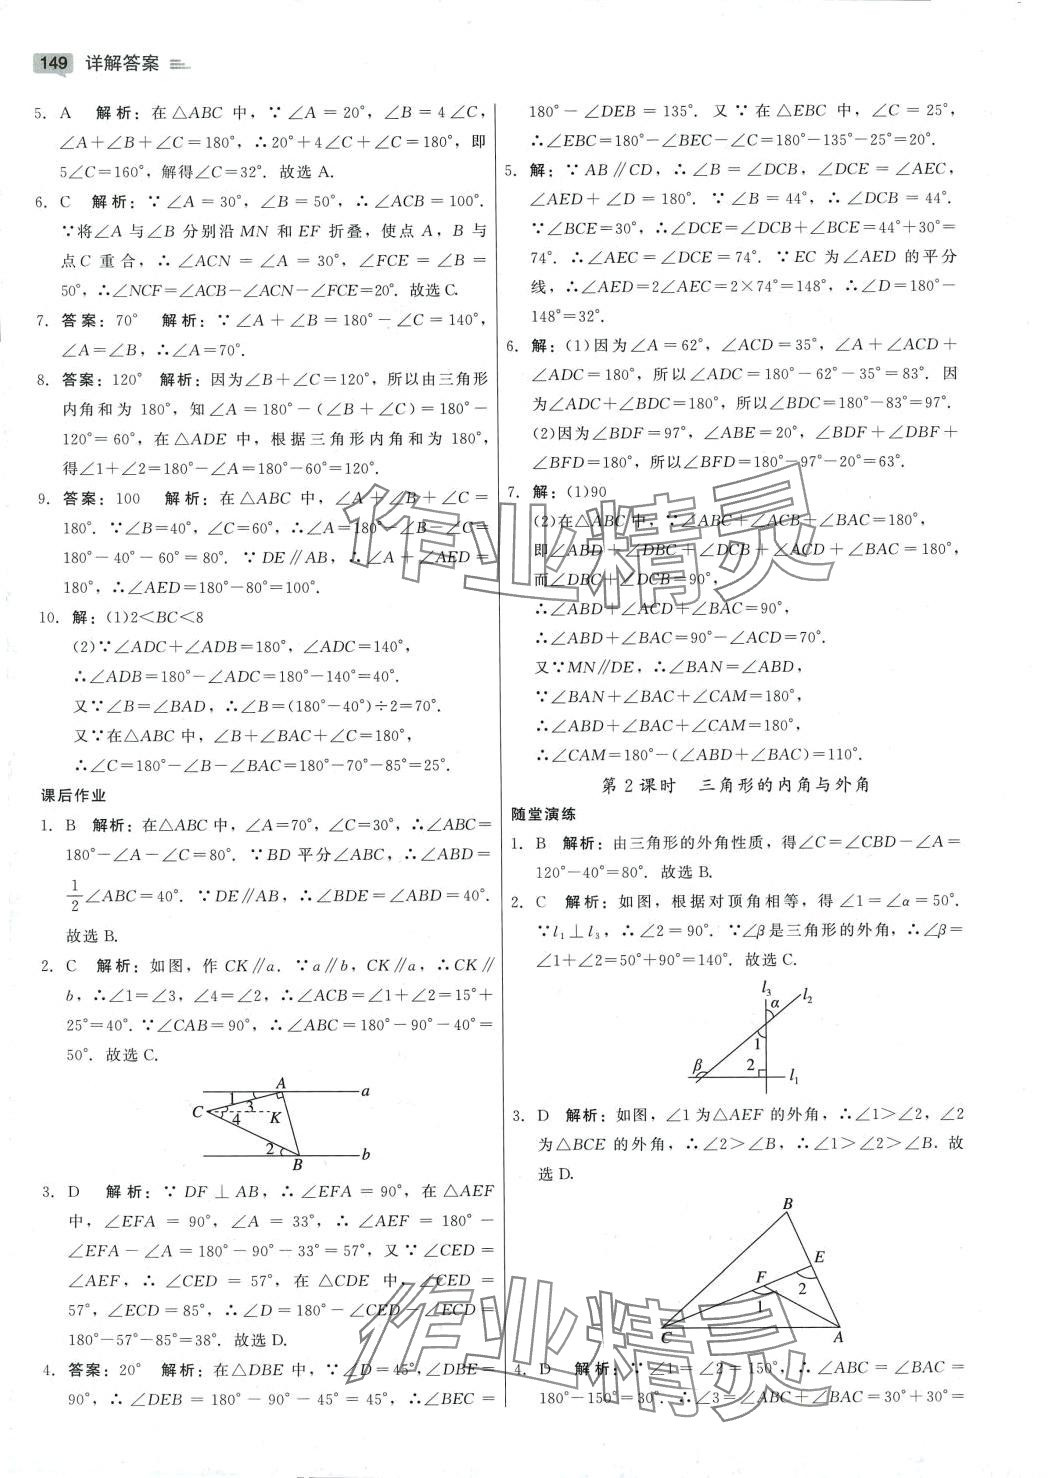 149 详解答案
5. A 解析：在△ABC 中，∵∠A＝20°，∠B＝4∠C，
∠A＋∠B＋∠C＝180°，∴20°＋4∠C＋∠C＝180°，即
5∠C＝160°，解得∠C＝32°．故选 A.
6. C 解析：∵∠A＝30°，∠B＝50°，∴∠ACB＝100°．
∵将∠A 与∠B 分别沿 MN 和 EF 折叠，使点 A，B 与
点C 重合，∴∠ACN＝∠A＝30°，∠FCE＝∠B＝
50°，∴∠NCF＝∠ACB－∠ACN－∠FCE＝20°．故选 C.
7. 答案：70° 解析：∵∠A＋∠B＝180°－∠C＝140°，
∠A＝∠B，∴∠A＝70°．
8. 答案：120° 解析：因为∠B＋∠C＝120°，所以由三角形
内角和为 180°，知∠A＝180°－(∠B＋∠C)＝180°－
120°＝60°，在△ADE 中，根据三角形内角和为 180°，
得∠1＋∠2＝180°－∠A＝180°－60°＝120°．
9. 答案：100 解析：在△ABC 中，∠A＋∠B＋∠C＝
180°．∵∠B＝40°，∠C＝60°，∴∠A＝180°－∠B－∠C＝
180°－40°－60°＝80°．∵DE∥AB，∴∠A＋∠AED＝
180°，∴∠AED＝180°－80°＝100°．
10. 解：(1)2＜BC＜8
(2)∵∠ADC＋∠ADB＝180°，∠ADC＝140°，
∴∠ADB＝180°－∠ADC＝180°－140°＝40°．
又∵∠B＝∠BAD，∴∠B＝(180°－40°)÷2＝70°．
又∵在△ABC 中，∠B＋∠BAC＋∠C＝180°，
∴∠C＝180°－∠B－∠BAC＝180°－70°－85°＝25°．
课后作业
1. B 解析：在△ABC 中，∠A＝70°，∠C＝30°，∴∠ABC＝
180°－∠A－∠C＝80°．∵BD 平分∠ABC，∴∠ABD＝
1/2∠ABC＝40°．∵DE∥AB，∴∠BDE＝∠ABD＝40°．
故选 B.
2. C 解析：如图，作 CK∥a．∵a∥b，CK∥a，∴CK∥
b，∴∠1＝∠3，∠4＝∠2，∴∠ACB＝∠1＋∠2＝15°＋
25°＝40°．∵∠CAB＝90°，∴∠ABC＝180°－90°－40°＝
50°．故选 C.
A
a
1
3
C
4
K
2
b
B
3. D 解析：∵DF⊥AB，∴∠EFA＝90°，在△AEF
中，∠EFA＝90°，∠A＝33°，∴∠AEF＝180°－
∠EFA－∠A＝180°－90°－33°＝57°，又∵∠CED＝
∠AEF，∴∠CED＝57°，在△CDE 中，∠CED＝
57°，∠ECD＝85°，∴∠D＝180°－∠CED－∠ECD＝
180°－57°－85°＝38°．故选 D.
4. 答案：20° 解析：在△DBE 中，∵∠D＝45°，∠DBE＝
90°，∴∠DEB＝180°－90°－45°＝45°，∴∠BEC＝
180°－∠DEB＝135°．又∵在△EBC 中，∠C＝25°，
∴∠EBC＝180°－∠BEC－∠C＝180°－135°－25°＝20°．
5. 解：∵AB∥CD，∴∠B＝∠DCB，∠DCE＝∠AEC，
∠AED＋∠D＝180°．∵∠B＝44°，∴∠DCB＝44°．
∵∠BCE＝30°，∴∠DCE＝∠DCB＋∠BCE＝44°＋30°＝
74°．∴∠AEC＝∠DCE＝74°．∵EC 为∠AED 的平分
线，∴∠AED＝2∠AEC＝2×74°＝148°，∴∠D＝180°－
148°＝32°．
6. 解：(1)因为∠A＝62°，∠ACD＝35°，∠A＋∠ACD＋
∠ADC＝180°，所以∠ADC＝180°－62°－35°＝83°．因
为∠ADC＋∠BDC＝180°，所以∠BDC＝180°－83°＝97°．
(2)因为∠BDF＝97°，∠ABE＝20°，∠BDF＋∠DBF＋
∠BFD＝180°，所以∠BFD＝180°－97°－20°＝63°．
7. 解：(1)90
(2)在△ABC 中，∵∠ABC＋∠ACB＋∠BAC＝180°，
即∠ABD＋∠DBC＋∠DCB＋∠ACD＋∠BAC＝180°，
而∠DBC＋∠DCB＝90°，
∴∠ABD＋∠ACD＋∠BAC＝90°，
∴∠ABD＋∠BAC＝90°－∠ACD＝70°．
又∵MN∥DE，∴∠BAN＝∠ABD，
∵∠BAN＋∠BAC＋∠CAM＝180°，
∴∠ABD＋∠BAC＋∠CAM＝180°，
∴∠CAM＝180°－(∠ABD＋∠BAC)＝110°．
第 2 课时 三角形的内角与外角
随堂演练
1. B 解析：由三角形的外角性质，得∠C＝∠CBD－∠A＝
120°－40°＝80°．故选 B.
2. C 解析：如图，根据对顶角相等，得∠1＝∠α＝50°．
∵l₁⊥l₃，∴∠2＝90°．∵∠β是三角形的外角，∴∠β＝
∠1＋∠2＝50°＋90°＝140°．故选 C.
l₃
l₂
α
1
β
2
l₁
3. D 解析：如图，∠1 为△AEF 的外角，∴∠1＞∠2，∠2
为△BCE 的外角，∴∠2＞∠B，∴∠1＞∠2＞∠B．故
选 D.
B
E
F
2
1
C
A
4. D 解析：∵∠1＝∠2＝150°，∴∠ABC＝∠BAC＝
180°－150°＝30°．∴∠3＝∠ABC＋∠BAC＝30°＋30°＝
作业精灵
作业精灵